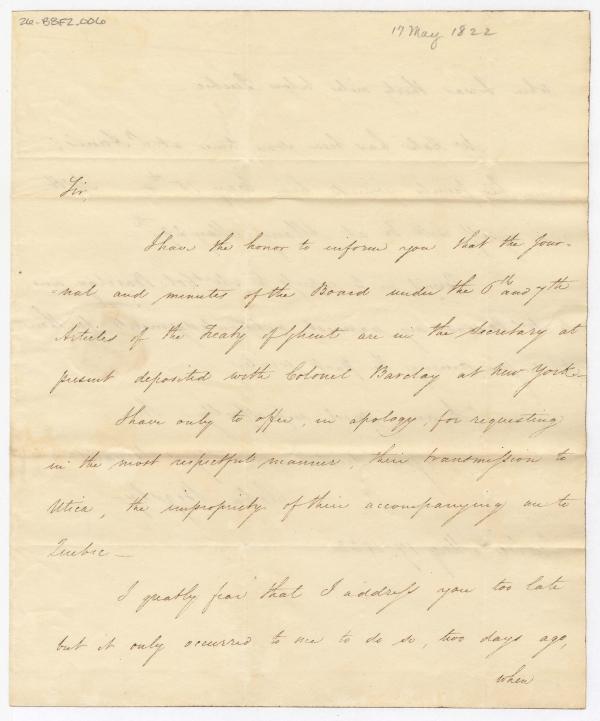 26-BBF2.006
17 May 1822
Sir,
I have the honor to inform you that the Jour=
=nal and minutes of the Board under the 6th and 7th
Articles of the Treaty of Ghent are in the Secretary at
present deposited with Colonel Barclay at New York—
I have only to offer, in apology, for requesting
in the most respectful manner, their transmission to
Utica, the impropriety of their accompanying me to
Quebec—
I greatly fear that I address you too late
but it only occurred to me to do so, two days ago,
when